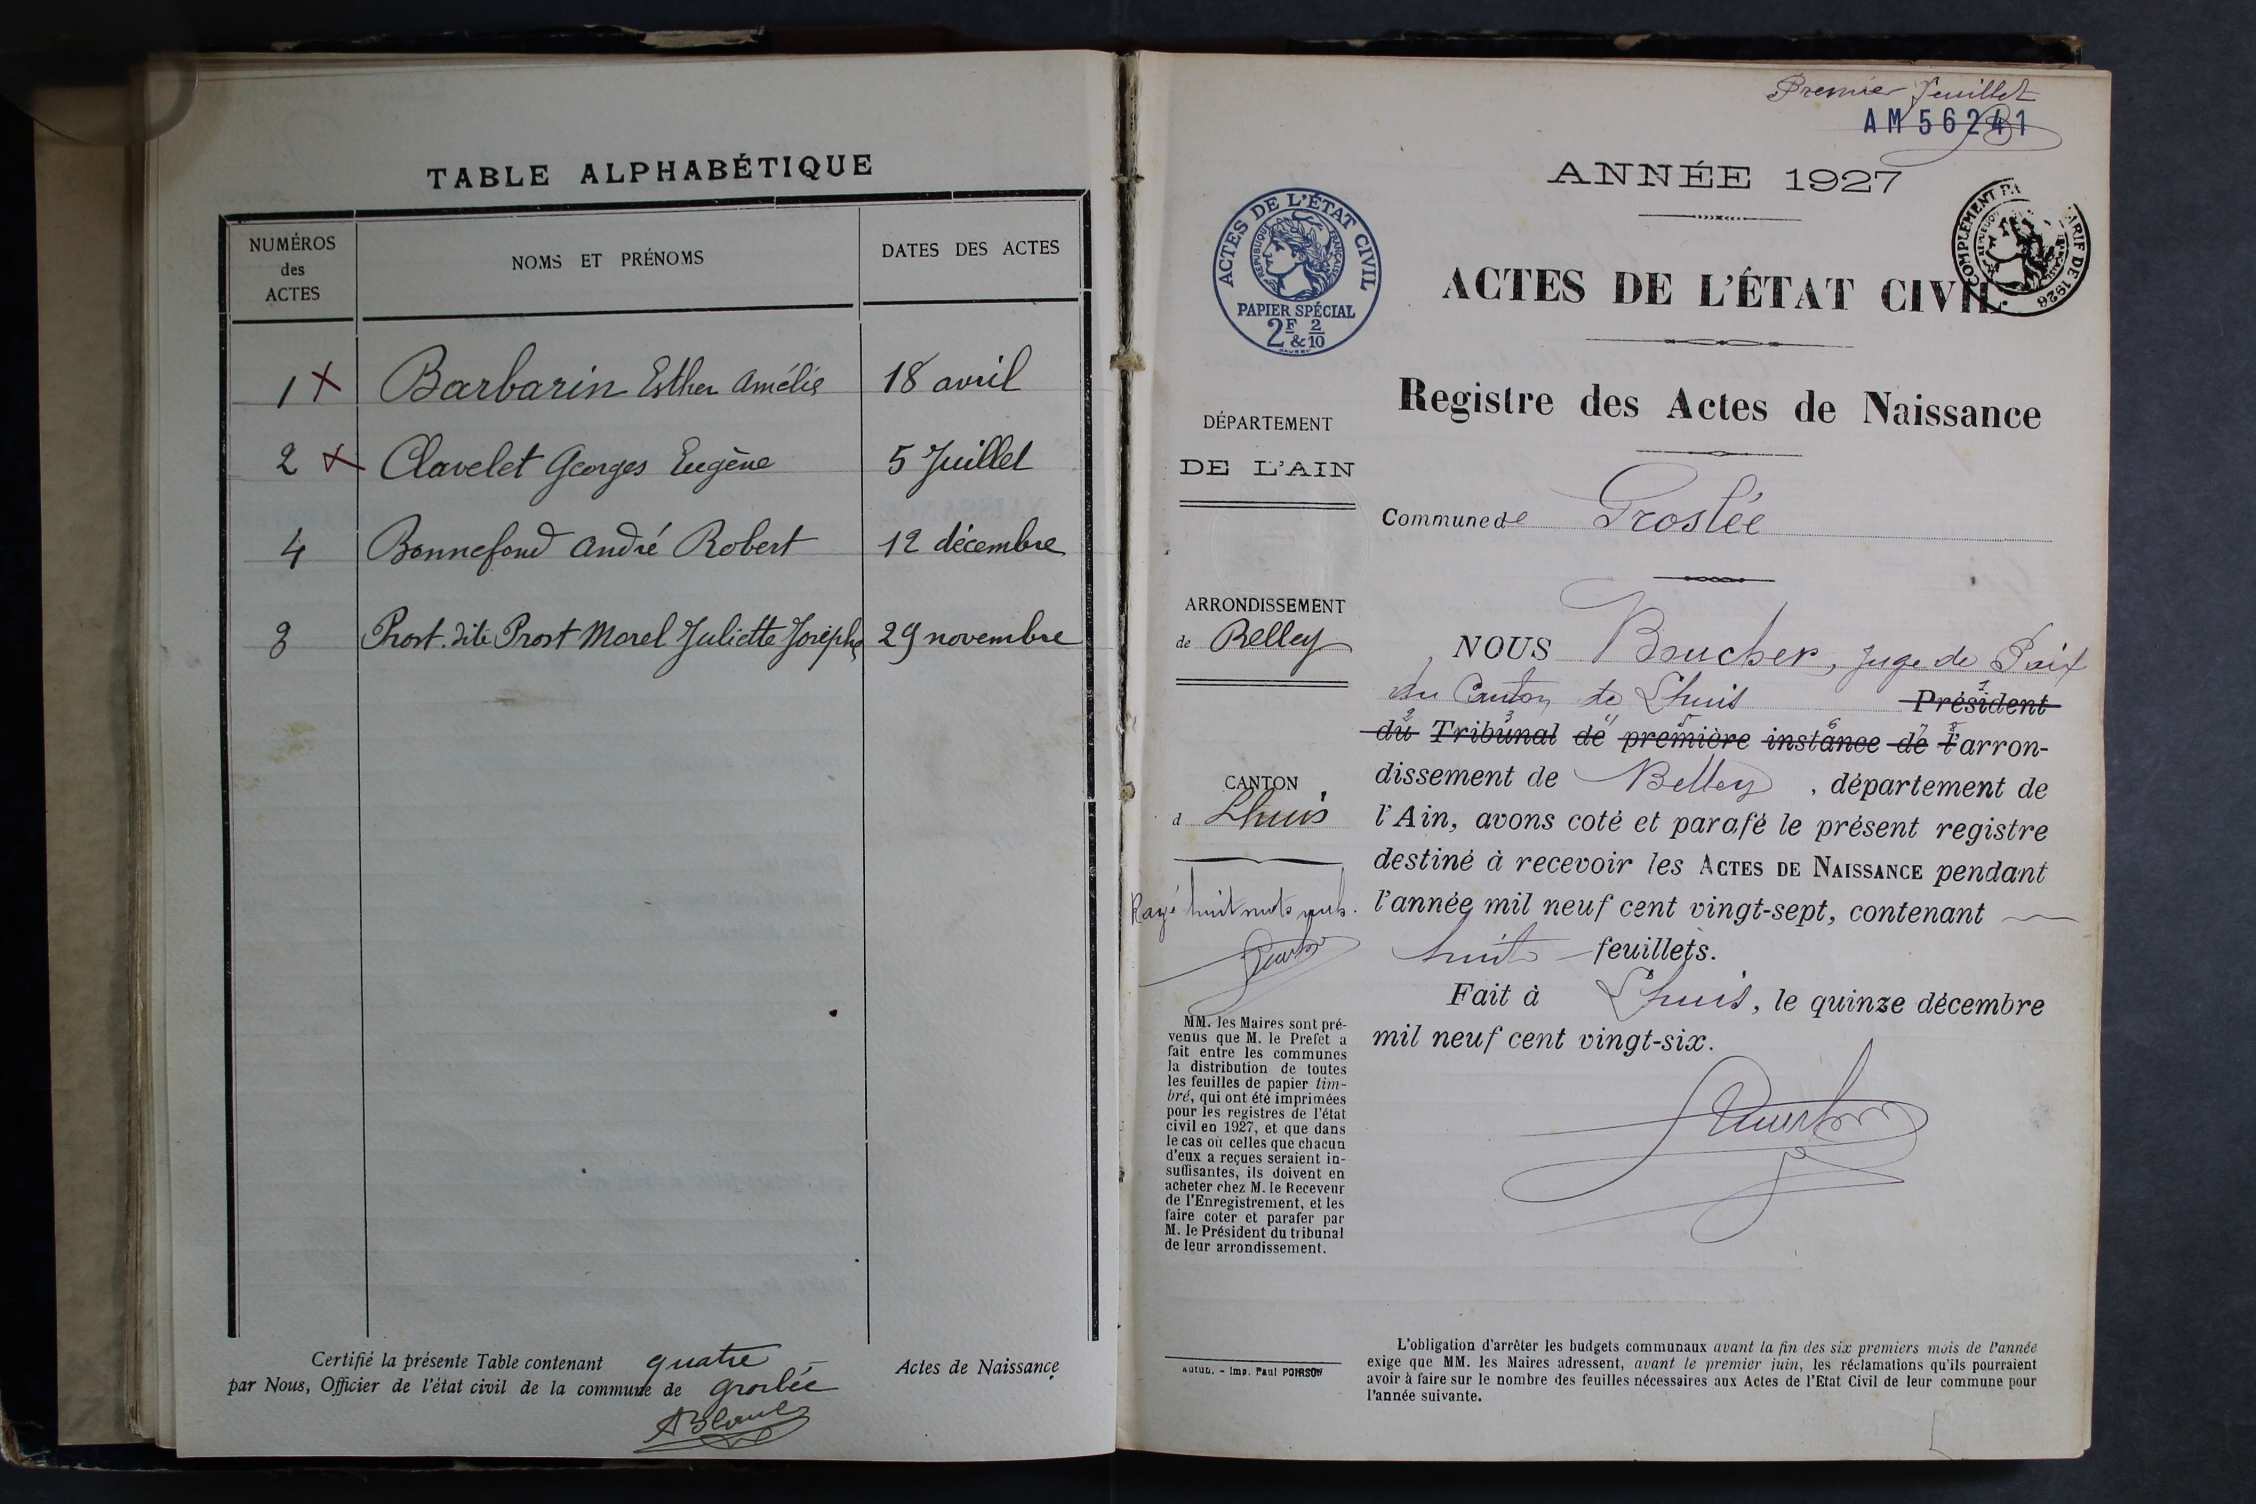 TABLE ALPHABÉTIQUE
NUMÉROS
des
ACTES
NOMS ET PRÉNOMS
DATES DES ACTES
1 x Barbarin Esther Amélie 18 avril
2 x Clavelet Georges Eugène 5 Juillet
4 Bonnefond André Robert 12 décembre
3 Prost dite Prost Morel Juliette Josèphe 29 novembre
Certifié la présente Table contenant quatre Actes de Naissance
par Nous, Officier de l'état civil de la commune de Groslée
Premier feuillet
AM 56241
ANNÉE 1927
ACTES DE L'ÉTAT CIVIL
RÉPUBLIQUE FRANÇAISE
PAPIER SPÉCIAL
2F & 2/10
COMPLÉMENT PA ARIF DE 1926
ACTES DE L'ÉTAT CIVIL.
Registre des Actes de Naissance
DÉPARTEMENT
DE L'AIN
Commune de Groslée
ARRONDISSEMENT
de Belley
CANTON
d Lhuis
Rayé huit mots nuls.
MM. les Maires sont pré-
venus que M. le Préfet a
fait entre les communes
la distribution de toutes
les feuilles de papier tim-
bré, qui ont été imprimées
pour les registres de l'état
civil en 1927, et que dans
le cas où celles que chacun
d'eux a reçues seraient in-
suffisantes, ils doivent en
acheter chez M. le Receveur
de l'Enregistrement, et les
faire coter et parafer par
M. le Président du tribunal
de leur arrondissement.
Autun. - Imp. Paul POIRSON
NOUS Boucher, Juge de Paix
du Canton de Lhuis Président
du Tribunal de première instance de l'arron-
dissement de Belley, département de
l'Ain, avons coté et parafé le présent registre
destiné à recevoir les ACTES DE NAISSANCE pendant
l'année mil neuf cent vingt-sept, contenant
huit feuillets.
Fait à Lhuis, le quinze décembre
mil neuf cent vingt-six.
L'obligation d'arrêter les budgets communaux avant la fin des six premiers mois de l'année
exige que MM. les Maires adressent, avant le premier juin, les réclamations qu'ils pourraient
avoir à faire sur le nombre des feuilles nécessaires aux Actes de l'Etat Civil de leur commune pour
l'année suivante.